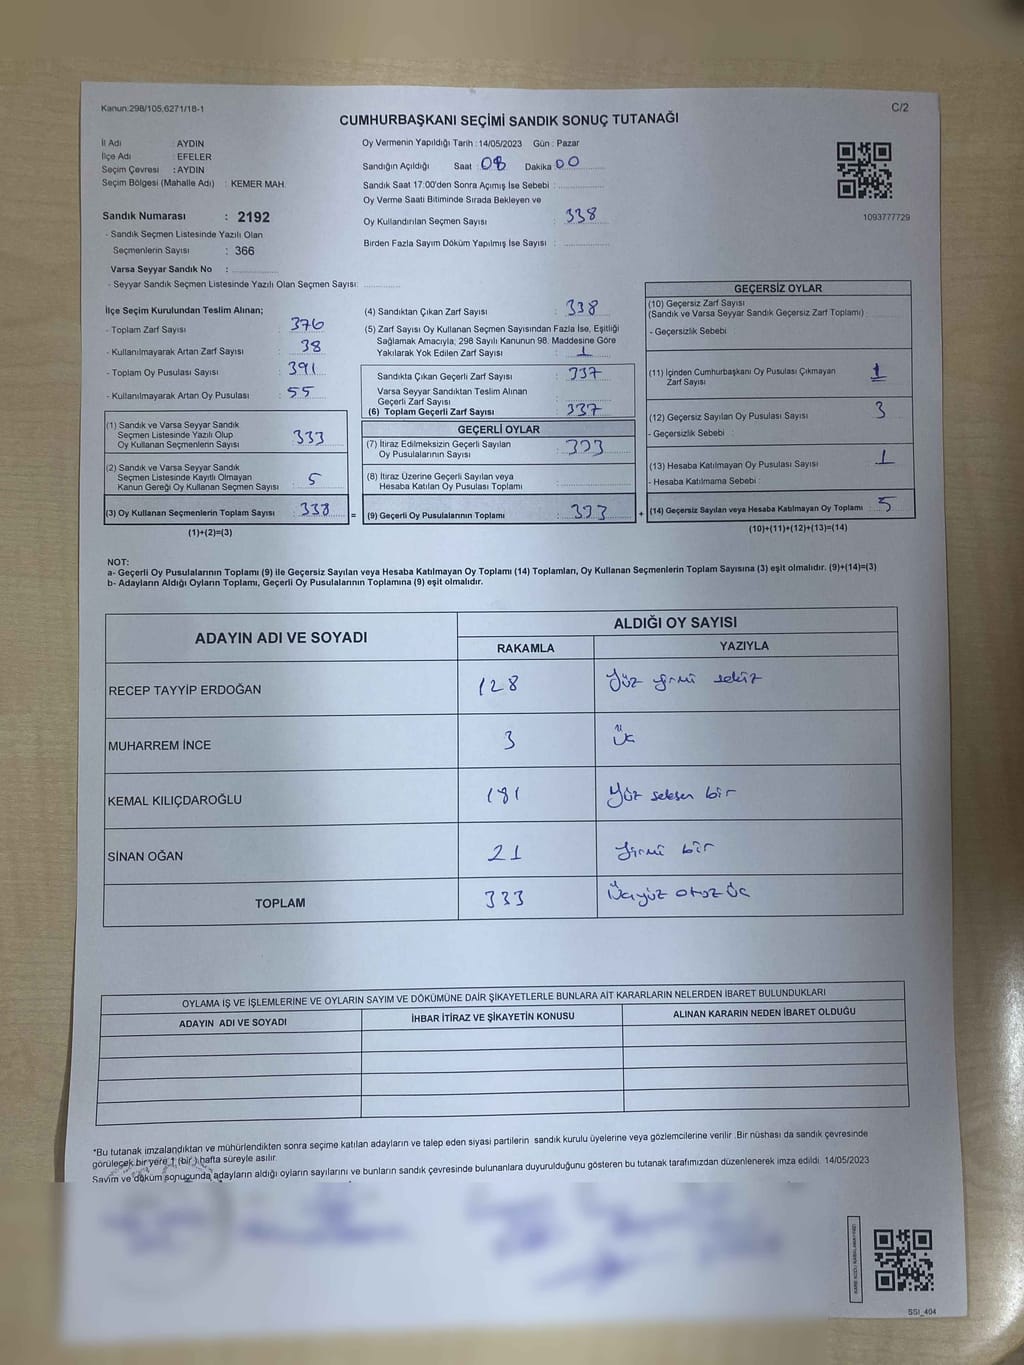 Kanun:298/105,6271/18-1
C/2
CUMHURBAŞKANI SEÇİMİ SANDIK SONUÇ TUTANAĞI
İl Adı : AYDIN
İlçe Adı : EFELER
Seçim Çevresi : AYDIN
Seçim Bölgesi (Mahalle Adı) : KEMER MAH.
Sandık Numarası : 2192
- Sandık Seçmen Listesinde Yazılı Olan
Seçmenlerin Sayısı : 366
Varsa Seyyar Sandık No :
- Seyyar Sandık Seçmen Listesinde Yazılı Olan Seçmen Sayısı:
Oy Vermenin Yapıldığı Tarih : 14/05/2023 Gün : Pazar
Sandığın Açıldığı Saat 08 Dakika 00
Sandık Saat 17:00'den Sonra Açımış İse Sebebi :
Oy Verme Saati Bitiminde Sırada Bekleyen ve
Oy Kullandırılan Seçmen Sayısı : 338
Birden Fazla Sayım Döküm Yapılmış İse Sayısı :
1093777729
İlçe Seçim Kurulundan Teslim Alınan;
- Toplam Zarf Sayısı : 376
- Kullanılmayarak Artan Zarf Sayısı : 38
- Toplam Oy Pusulası Sayısı : 391
- Kullanılmayarak Artan Oy Pusulası : 55
(1) Sandık ve Varsa Seyyar Sandık
Seçmen Listesinde Yazılı Olup
Oy Kullanan Seçmenlerin Sayısı : 333
(2) Sandık ve Varsa Seyyar Sandık
Seçmen Listesinde Kayıtlı Olmayan
Kanun Gereği Oy Kullanan Seçmen Sayısı : 5
(3) Oy Kullanan Seçmenlerin Toplam Sayısı : 338
(1)+(2)=(3)
(4) Sandıktan Çıkan Zarf Sayısı : 338
(5) Zarf Sayısı Oy Kullanan Seçmen Sayısından Fazla İse, Eşitliği
Sağlamak Amacıyla, 298 Sayılı Kanunun 98. Maddesine Göre
Yakılarak Yok Edilen Zarf Sayısı : 1
Sandıkta Çıkan Geçerli Zarf Sayısı : 337
Varsa Seyyar Sandıktan Teslim Alınan
Geçerli Zarf Sayısı :
(6) Toplam Geçerli Zarf Sayısı : 337
GEÇERLİ OYLAR
(7) İtiraz Edilmeksizin Geçerli Sayılan
Oy Pusulalarının Sayısı : 333
(8) İtiraz Üzerine Geçerli Sayılan veya
Hesaba Katılan Oy Pusulası Toplamı :
= (9) Geçerli Oy Pusulalarının Toplamı : 333
GEÇERSİZ OYLAR
(10) Geçersiz Zarf Sayısı
(Sandık ve Varsa Seyyar Sandık Geçersiz Zarf Toplamı) :
- Geçersizlik Sebebi :
(11) İçinden Cumhurbaşkanı Oy Pusulası Çıkmayan
Zarf Sayısı : 1
(12) Geçersiz Sayılan Oy Pusulası Sayısı : 3
- Geçersizlik Sebebi :
(13) Hesaba Katılmayan Oy Pusulası Sayısı : 1
- Hesaba Katılmama Sebebi :
+ (14) Geçersiz Sayılan veya Hesaba Katılmayan Oy Toplamı : 5
(10)+(11)+(12)+(13)=(14)
NOT:
a- Geçerli Oy Pusulalarının Toplamı (9) ile Geçersiz Sayılan veya Hesaba Katılmayan Oy Toplamı (14) Toplamları, Oy Kullanan Seçmenlerin Toplam Sayısına (3) eşit olmalıdır. (9)+(14)=(3)
b- Adayların Aldığı Oyların Toplamı, Geçerli Oy Pusulalarının Toplamına (9) eşit olmalıdır.
ADAYIN ADI VE SOYADI
ALDIĞI OY SAYISI
RAKAMLA
YAZIYLA
RECEP TAYYİP ERDOĞAN 128 Yüz yirmi sekiz
MUHARREM İNCE 3 Üç
KEMAL KILIÇDAROĞLU 181 Yüz seksen bir
SİNAN OĞAN 21 Yirmi bir
TOPLAM 333 Üçyüz otuz üç
OYLAMA İŞ VE İŞLEMLERİNE VE OYLARIN SAYIM VE DÖKÜMÜNE DAİR ŞİKAYETLERLE BUNLARA AİT KARARLARIN NELERDEN İBARET BULUNDUKLARI
ADAYIN ADI VE SOYADI
İHBAR İTİRAZ VE ŞİKAYETİN KONUSU
ALINAN KARARIN NEDEN İBARET OLDUĞU
*Bu tutanak imzalandıktan ve mühürlendikten sonra seçime katılan adayların ve talep eden siyasi partilerin sandık kurulu üyelerine veya gözlemcilerine verilir .Bir nüshası da sandık çevresinde
görülecek bir yere 1 (bir ) hafta süreyle asılır.
Sayım ve döküm sonucunda adayların aldığı oyların sayılarını ve bunların sandık çevresinde bulunanlara duyurulduğunu gösteren bu tutanak tarafımızdan düzenlenerek imza edildi. 14/05/2023
SSI_404